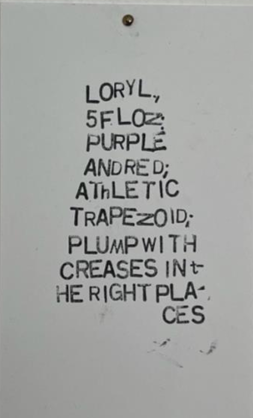 LORYL.,
5FLOZ;
PURPLE
ANDRED;
AThLETIC
TRAPEZOID;
PLUMPWITH
CREASES INt-
HE RIGHT PLA-
CES